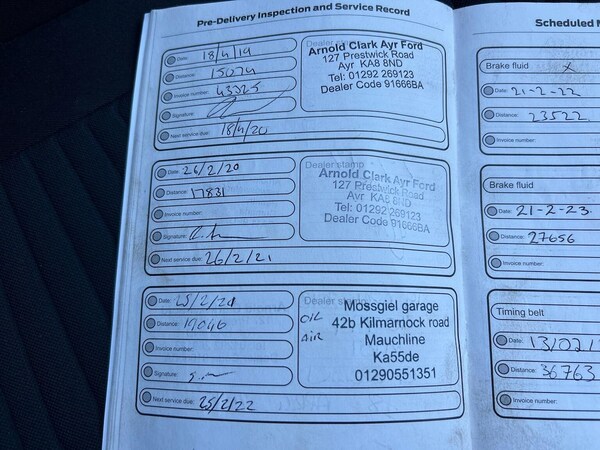 Pre-Delivery Inspection and Service Record
Date: 18/4/19
Distance: 15074
Invoice number: 43325
Signature:
Next service due: 18/4/20
Dealer stamp
Arnold Clark Ayr Ford
127 Prestwick Road
Ayr KA8 8ND
Tel: 01292 269123
Dealer Code 91666BA
Date: 26/2/20
Distance: 17831
Invoice number:
Signature:
Next service due: 26/2/21
Dealer stamp
Arnold Clark Ayr Ford
127 Prestwick Road
Ayr KA8 8ND
Tel: 01292 269123
Dealer Code 91666BA
Date: 25/2/21
Distance:
Invoice number:
Signature:
Next service due: 25/2/22
Dealer stamp
OIL
AIR
Mossgiel garage
42b Kilmarnock road
Mauchline
Ka55de
01290551351
Scheduled
Brake fluid X
Date: 21-2-22
Distance: 23522
Invoice number:
Brake fluid
Date: 21-2-23.
Distance: 27656
Invoice number:
Timing belt
Date:
Distance: 36763
Invoice number: